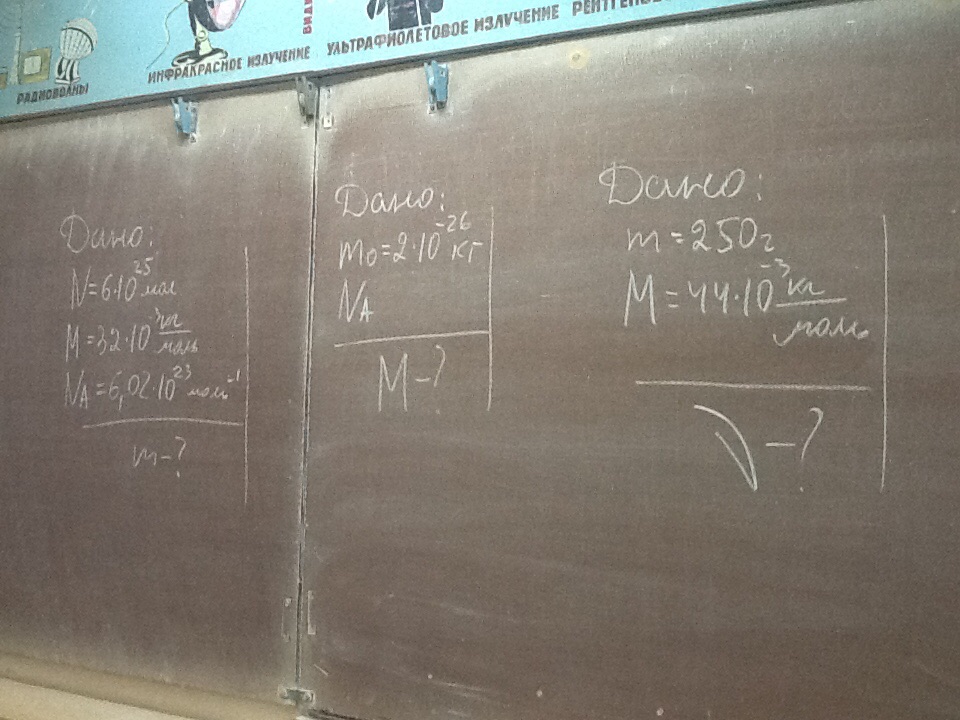 РАДИОВОЛНЫ
ИНФРАКРАСНОЕ ИЗЛУЧЕНИЕ
УЛЬТРАФИОЛЕТОВОЕ ИЗЛУЧЕНИЕ
Дано:
N=6·10²⁵мол
M=32·10⁻³кг/моль
Nᴀ=6,02·10²³моль⁻¹
m-?
Дано:
m₀=2·10⁻²⁶кг
Nᴀ
M-?
Дано:
m=250г
M=44·10⁻³кг/моль
ν-?